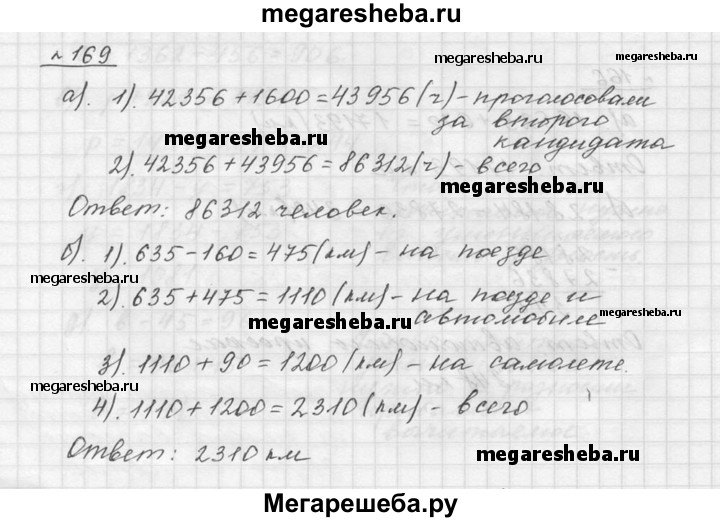 megaresheba.ru
№169
megaresheba.ru
а). 1). 42356+1600=43956(ч)-проголосовали
за второго
megaresheba.ru
кандидата
2). 42356+43956=86312(ч)-всего
megaresheba.ru
Ответ: 86312 человек.
б). 1). 635-160=475(км)-на поезде
megaresheba.ru
2). 635+475=1110(км)-на поезде и
megaresheba.ru
автомобиле
megaresheba.ru
3). 1110+90=1200(км)-на самолете.
megaresheba.ru
4). 1110+1200=2310(км)-всего
Ответ: 2310 км
megaresheba.ru
Мегарешеба.ру